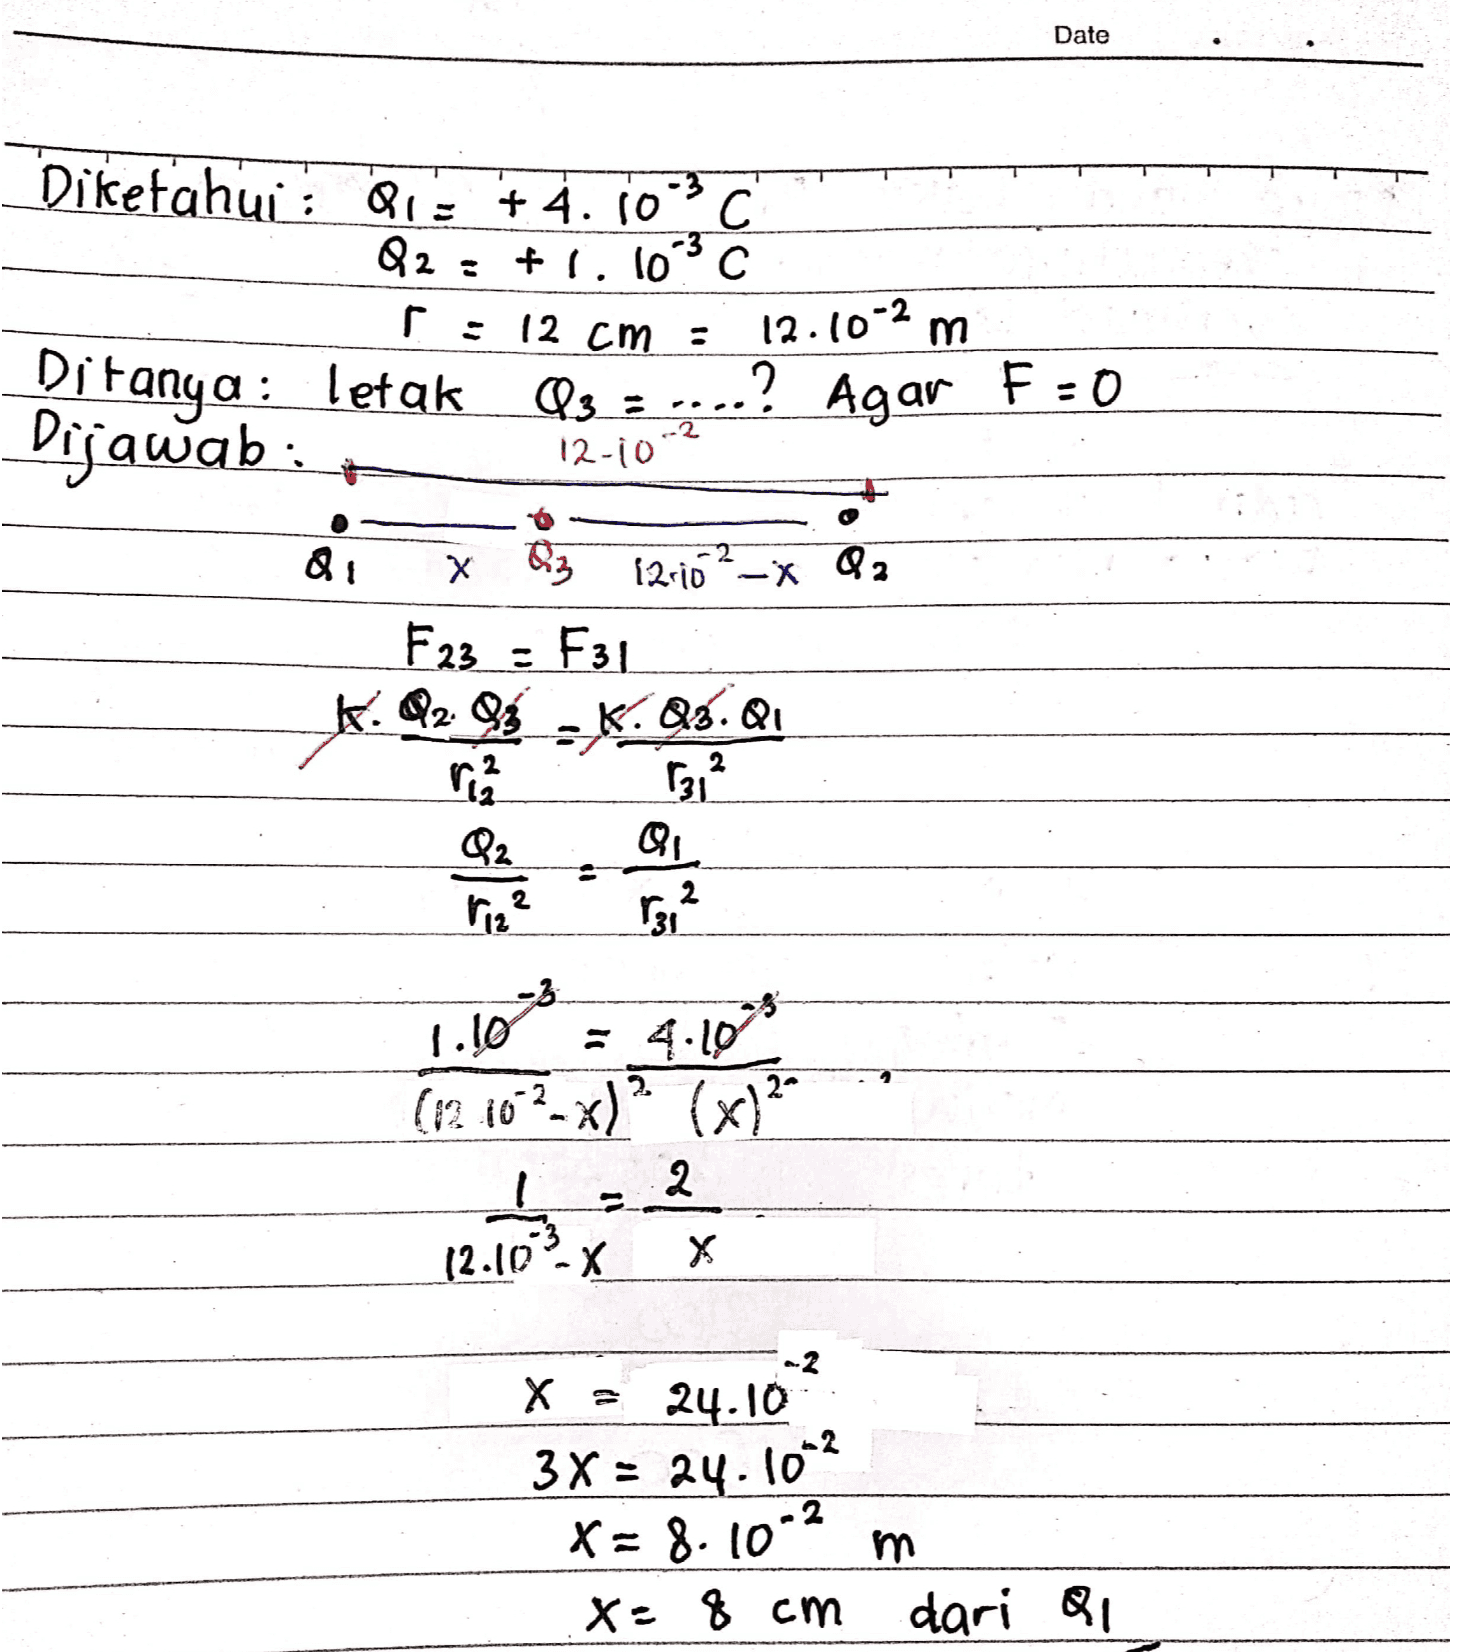 Date . .
Diketahui : Q1 = + 4. 10⁻³ C
Q2 = + 1. 10⁻³ C
r = 12 cm = 12.10⁻² m
Ditanya : letak Q3 = ....? Agar F = 0
Dijawab :
12-10⁻²
Q1 x Q3 12.10⁻² - x Q2
F23 = F31
K. Q2. Q3 / r12² = K. Q3. Q1 / r31²
Q2 / r12² = Q1 / r31²
1.10⁻³ / (12 10⁻² - x)² = 4.10⁻³ / (x)²
1 / 12.10⁻³ - x = 2 / x
x = 24.10⁻²
3x = 24. 10⁻²
x = 8. 10⁻² m
x = 8 cm dari Q1